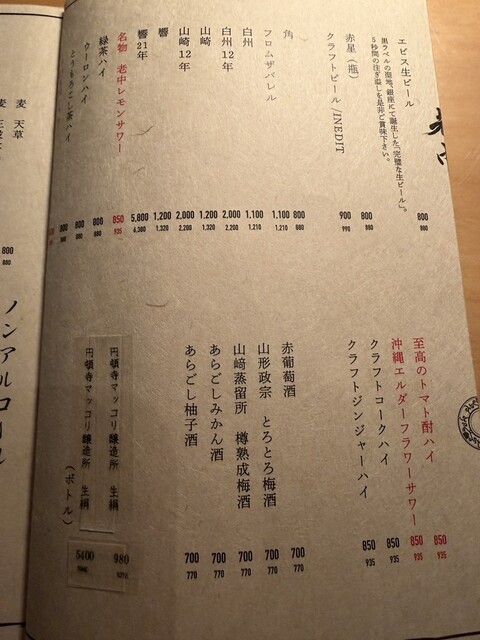 エビス生ビール 800 880
黒ラベルの聖地、銀座にて誕生した「完璧な生ビール」。
5秒間の注ぎ溢しを是非ご賞味下さい。
赤星(瓶) 800 880
クラフトビール/INEDIT 900 990
角 800 880
フロムザバレル 1,100 1,210
白州 1,100 1,210
白州12年 2,000 2,200
山崎 1,200 1,320
山崎12年 2,000 2,200
響 1,200 1,320
響21年 5,800 6,380
名物 老中レモンサワー 850 935
緑茶ハイ 800 880
ウーロンハイ 800 880
とうもろこし茶ハイ
至高のトマト酎ハイ 850 935
沖縄エルダーフラワーサワー 850 935
クラフトコークハイ 850 935
クラフトジンジャーハイ 850 935
赤葡萄酒 700 770
山形政宗 とろとろ梅酒 700 770
山﨑蒸留所 樽熟成梅酒 700 770
あらごしみかん酒 700 770
あらごし柚子酒 700 770
円頓寺マッコリ醸造所 生絹 980
円頓寺マッコリ醸造所 生絹(ボトル) 5400
麦 天草
800
880
ノンアルコール